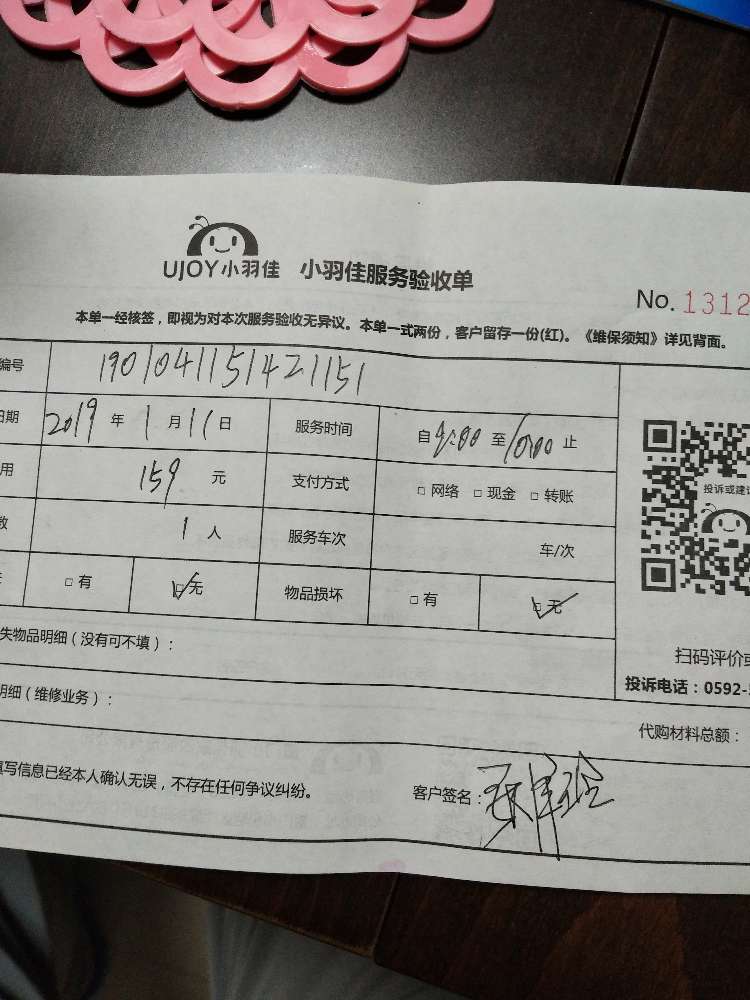 UJOY小羽佳 小羽佳服务验收单
No. 1312
本单一经核签，即视为对本次服务验收无异议。本单一式两份，客户留存一份(红)。《维保须知》详见背面。
编号 190104115142１151
日期 2019 年 1 月 11 日 服务时间 自 9:00 至 10:00 止
用 159 元 支付方式 □ 网络 □ 现金 □ 转账
数 1 人 服务车次 车/次
□ 有 □ 无 物品损坏 □ 有 □ 无
投诉或建议
扫码评价或
投诉电话：0592-
失物品明细（没有可不填）：
明细（维修业务）：
代购材料总额：
填写信息已经本人确认无误，不存在任何争议纠纷。
客户签名：